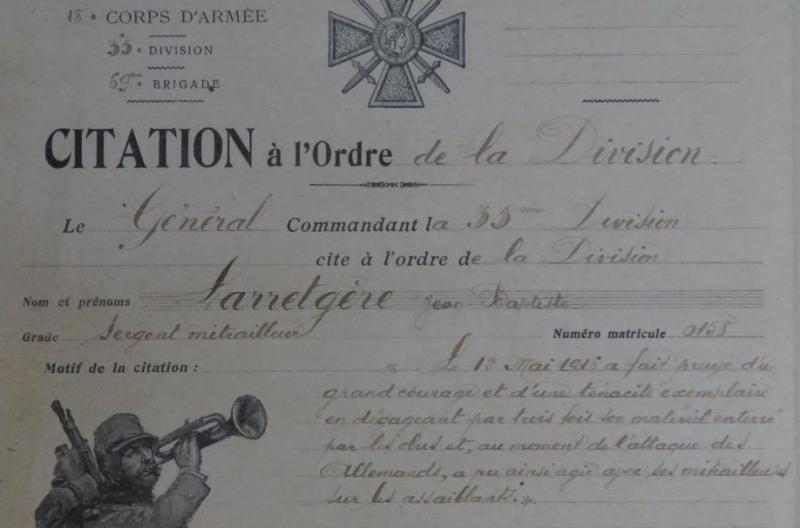 18e CORPS D'ARMÉE
35e DIVISION
69e BRIGADE
CITATION à l'Ordre de la Division.
Le Général Commandant la 35ème Division
cite à l'ordre de la Division
Nom et prénoms Larretgère Jean-Baptiste
Grade Sergent mitrailleur Numéro matricule 0158
Motif de la citation : « Le 1er Mai 1915 a fait preuve d'un
grand courage et d'une ténacité exemplaire
en dégageant par trois fois son matériel enterré
par les obus et, au moment de l'attaque des
Allemands, a pu ainsi agir avec ses mitrailleurs
sur les assaillants. »